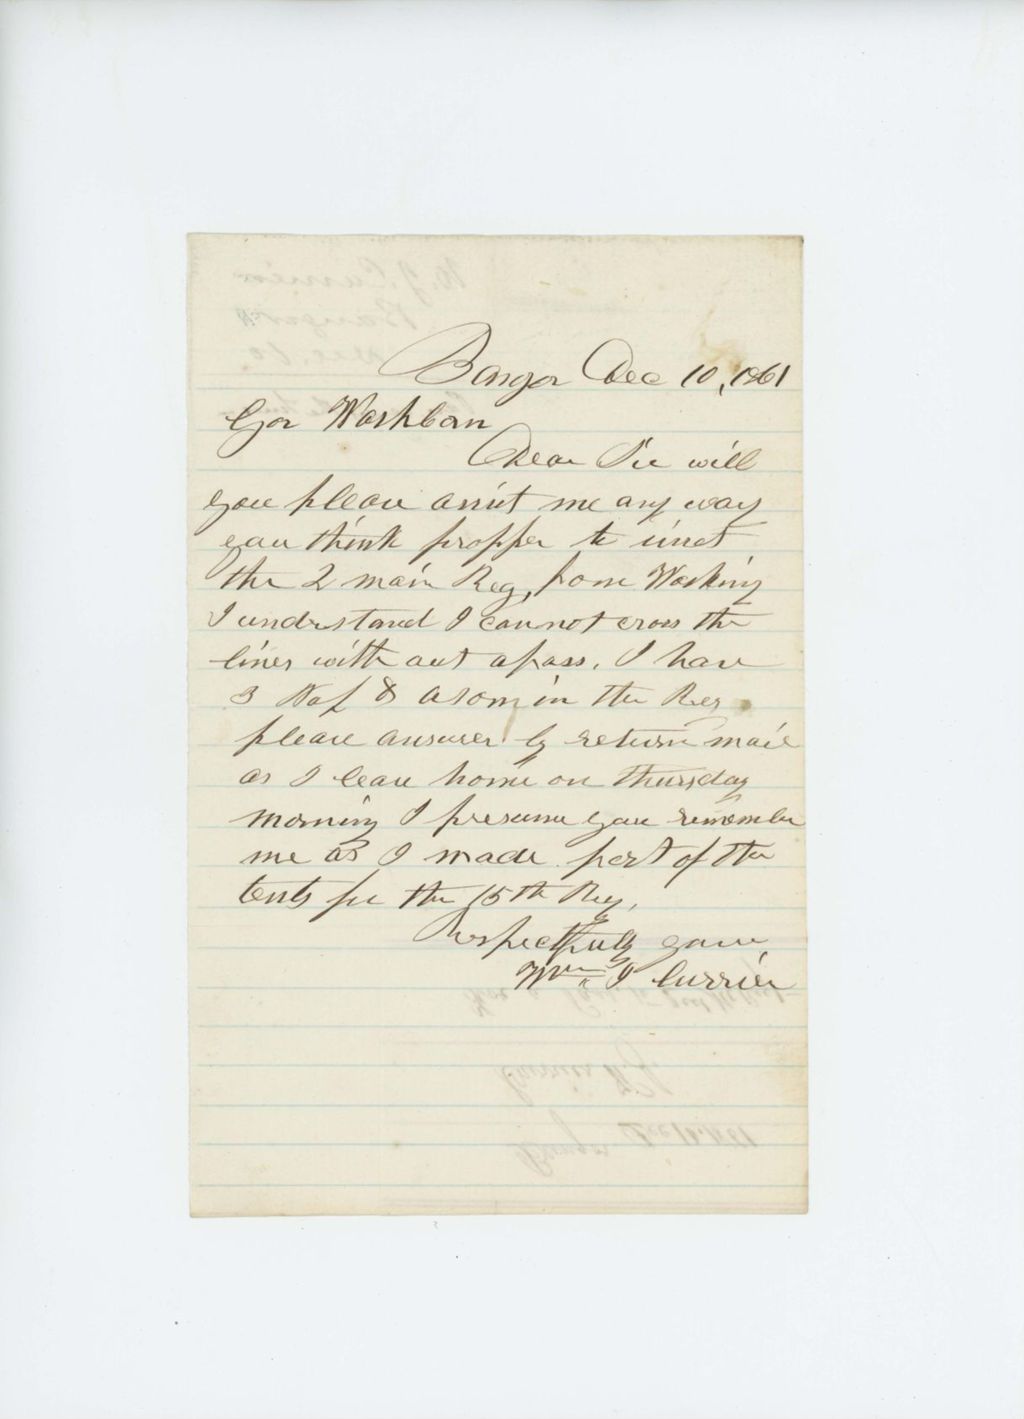 Bangor Dec 10, 1861
Gov Washburn
Dear Sir will
you please assist me any way
you think propper to visit
the 2 main Reg, from Washing
I understand I cannot cross the
lines with out a pass. I have
3 & a son in the Reg
please answer by return mail
as I leave home on thursday
morning I presume you remember
me as I made part of the
tents for the 15th Reg,
Respectfully yours,
Wm J Currier